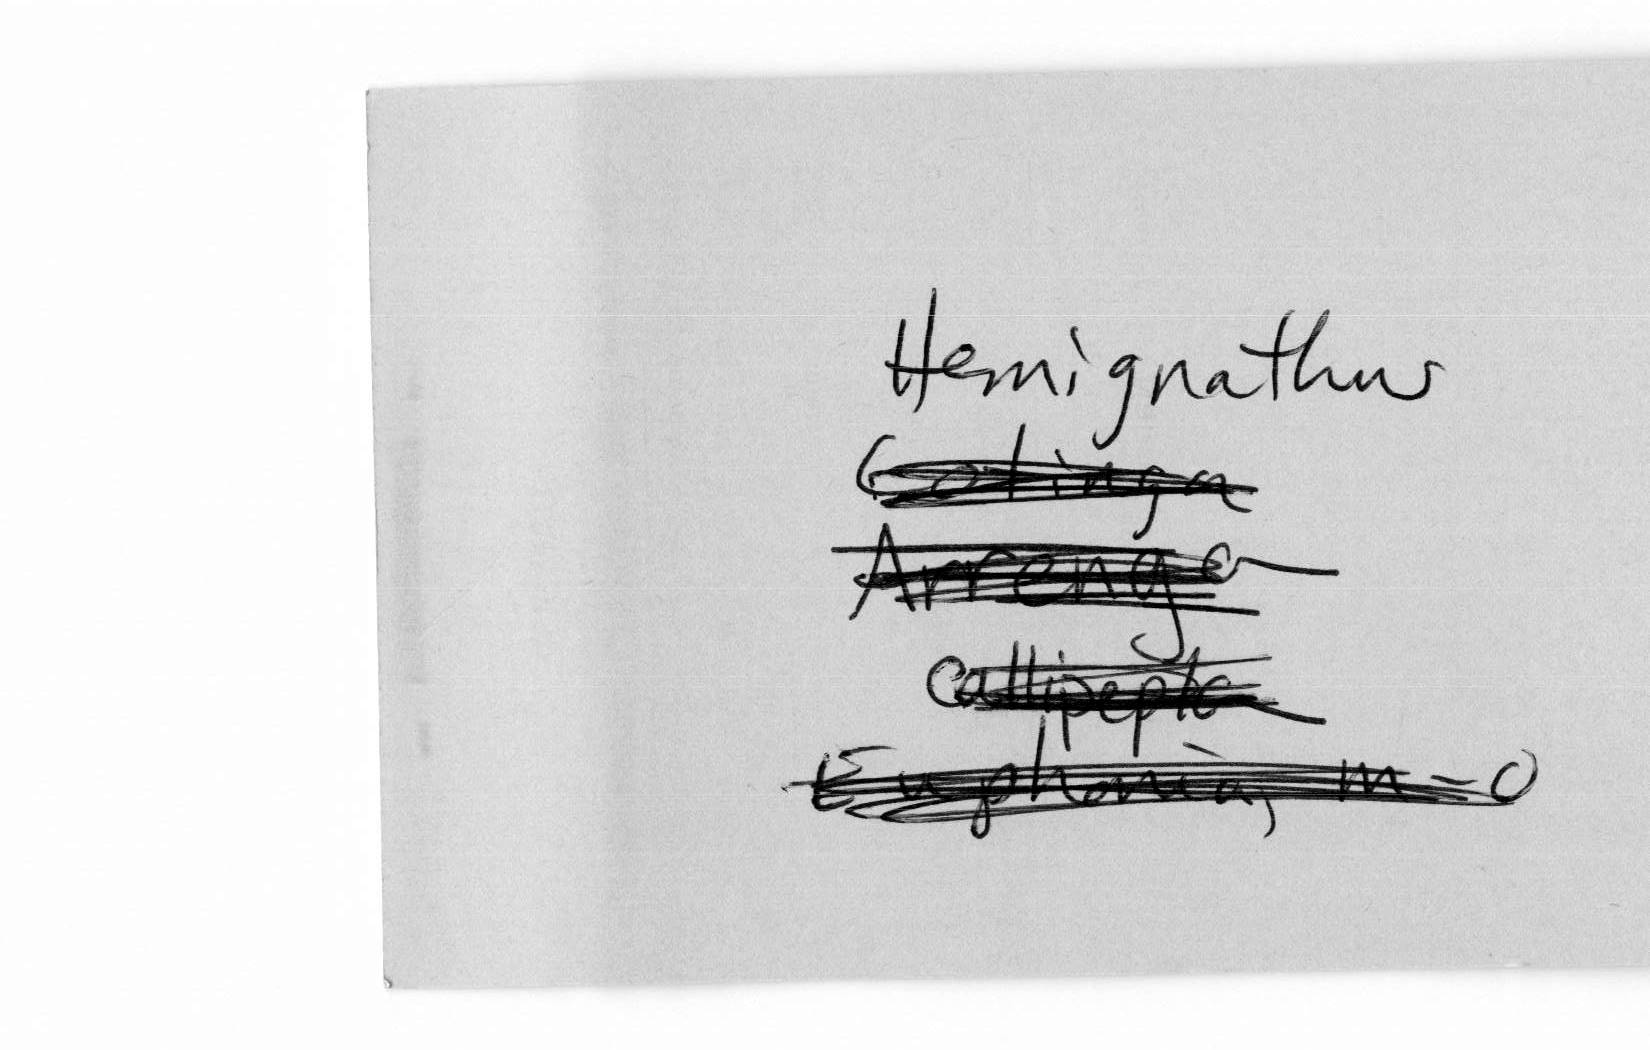 Hemignathus
Cotinga
Arrenga
Callipepla
Euphonia, m-O